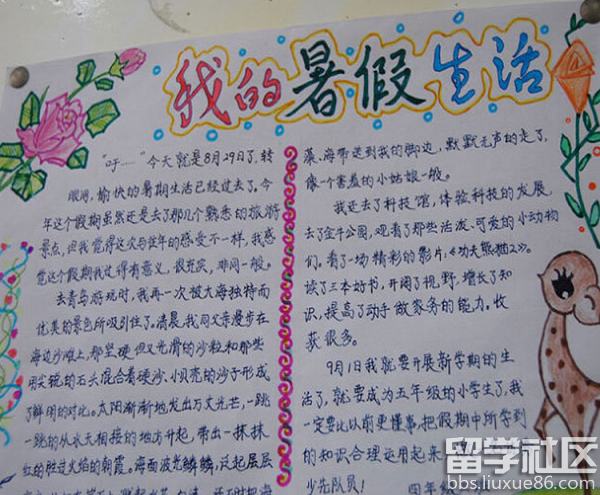 我的暑假生活
“吁……”今天就是8月29日了,转
眼间,愉快的暑期生活已经过去了,今
年这个假期虽然还是去了那几个熟悉的旅游
景点,但我觉得这次与往年的感受不一样,我感
觉这个假期我过得有意义,很充实,非同一般。
去青岛游玩时,我再一次被大海独特而
优美的景色所吸引住了。清晨,我同父亲漫步在
海边沙滩上,那坚硬但又光滑的沙粒和那些
用尖锐的石头混合着硬沙、小贝壳的沙子形成
了鲜明的对比。太阳渐渐地发出万丈光芒,一跳
一跳的从水天相接的地方升起,带出一抹抹
红的胜过火焰的朝霞。海面波光鳞鳞,泛起层层
藻、海带送到我的脚边,默默无声的走了,
像一个害羞的小姑娘一般。
我还去了科技馆,体验科技的发展,
去了金牛公园,观看了那些活泼、可爱的小动物
们,看了一场精彩的影片:《功夫熊猫2》。
读了三本好书,开阔了视野,增长了知
识,提高了动手做家务的能力。收
获很多。
9月1日我就要开展新学期的生
活了,就要成为五年级的小学生了,我
一定要比以前更懂事,把假期中所学到
的知识合理运用起来
少先队员!
四年级
留学社区
bbs.liuxue86.com